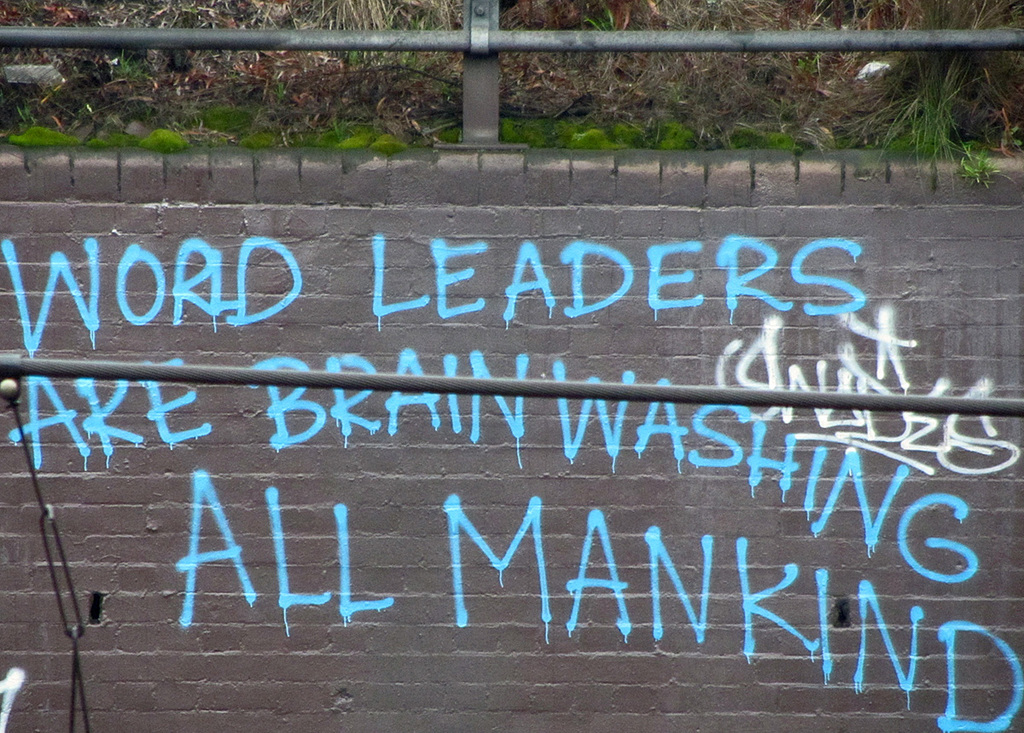 WORD LEADERS
ARE BRAIN WASHING
ALL MANKIND